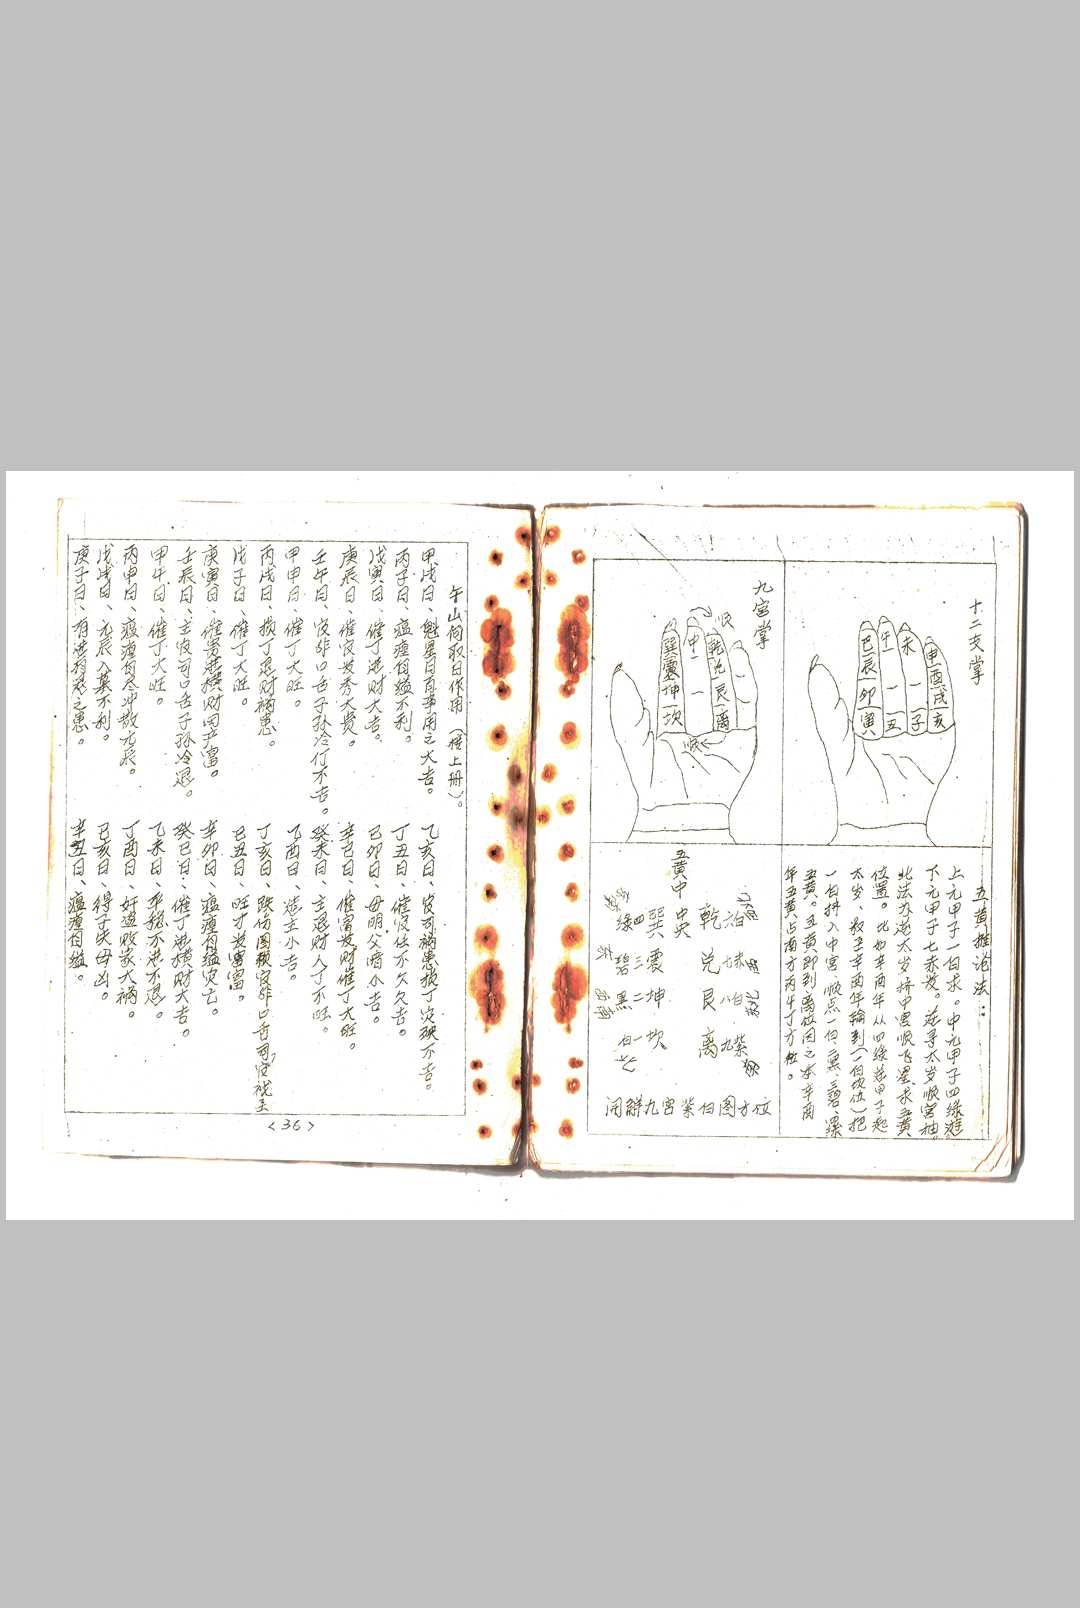 十二支掌
申酉戌亥
未一一子
午一一丑
巳辰一卯寅
九宫掌
顺
乾兑艮一离
中一一
巽震坤一坎
顺
五黄推论法：
上元甲子一白求。中元甲子四绿
下元甲子七赤发。逆寻太岁顺宫抽。
此法亦逆太岁持中宫顺飞星求五黄
位置。比如辛酉年从四绿逆甲子起
太岁、数至辛酉年轮到（一白坎位）把
一白抖入中宫、顺点一白、二黑、三碧、四绿
五黄。五黄即到离位因之本辛酉
年五黄占南方丙午丁方位。
五黄中
中央
乾 六白
兑 七赤
艮 八白
离 九紫
巽 四绿
震 三碧 东
坤 二黑 西南
坎 一白 北
开解九宫紫白图方位
午山向取日作用（接上册）。
甲戌日、魁星日百事用之大吉。
乙亥日、官司祸患损丁次殃不吉。
丙子日、瘟㾮自缢不利。
丁丑日、催官仕不欠久吉。
戊寅日、催丁进财大吉。
己卯日、母明父暗小吉。
庚辰日、催官发秀大贵。
辛巳日、催富发财催丁大旺。
壬午日、官非口舌子孙冷行不吉。
癸未日、主退财人丁不旺。
甲申日、催丁大旺。
乙酉日、造主小吉。
丙戌日、损丁退财祸患。
丁亥日、跌伤图赖官非口舌
戊子日、催丁大旺。
己丑日、旺才发富。
庚寅日、催贵进横财田产富。
辛卯日、瘟㾮自缢灾亡。
壬辰日、主官司口舌子孙冷退。
癸巳日、催丁进横财大吉。
甲午日、催丁大旺。
乙未日、平稳不进不退。
丙申日、瘟㾮自冷冲散元辰。
丁酉日、奸盗败家大祸。
戊戌日、元辰入墓不利。
己亥日、得子失母凶。
庚子日、有进有愁之患。
辛丑日、瘟㾮自缢。
<36>